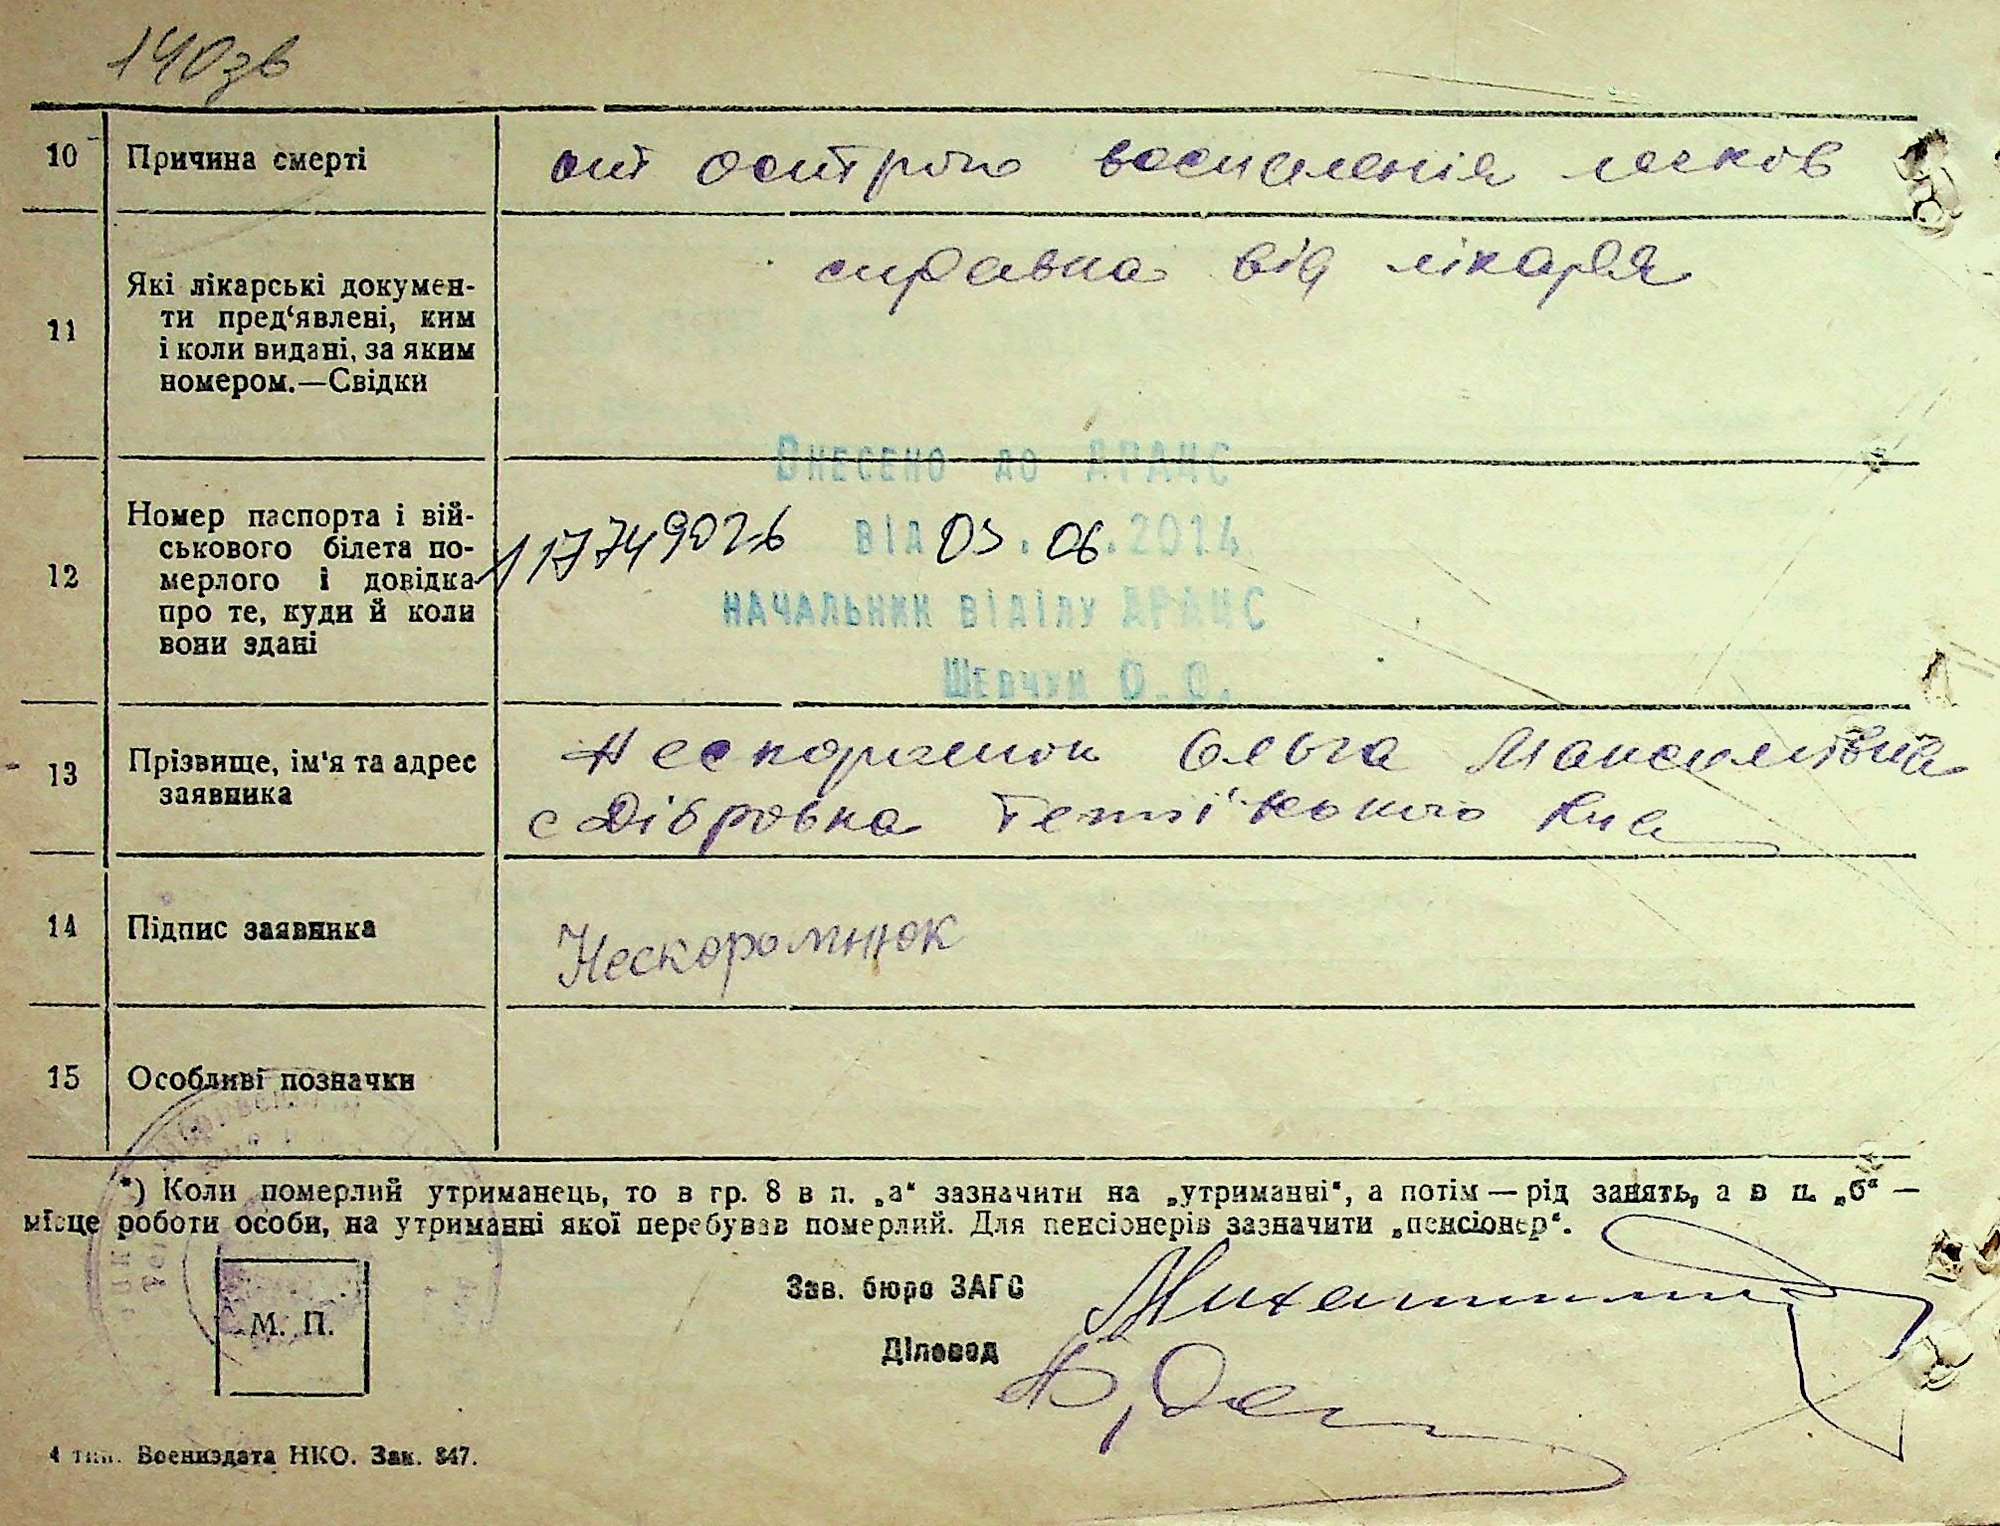 140зв
10 Причина смерті
от острого воспаленія легков
11 Які лікарські докумен-
ти пред‘явлені, ким
і коли видані, за яким
номером.—Свідки
справка від лікаря
Внесено до ДРАЦС
12 Номер паспорта і вій-
ськового білета по-
мерлого і довідка
про те, куди й коли
вони здані
від 03.06.2014
начальник відділу ДРАЦС
Шевчук О.О.
13 Прізвище, ім'я та адрес
заявника
Нескоромнюк Ольга Максимівна
с Дібровка
14 Підпис заявника
Нескоромнюк
15 Особливі позначки
*) Коли померлий утриманець, то в гр. 8 в п. „а“ зазначити на „утриманні“, а потім — рід занять, а в п. „б“ —
місце роботи особи, на утриманні якої перебував померлий. Для пенсіонерів зазначити „пенсіонер“.
М. П.
Зав. бюро ЗАГС
Діловод
4 тип. Воениздата НКО. Зак. 847.